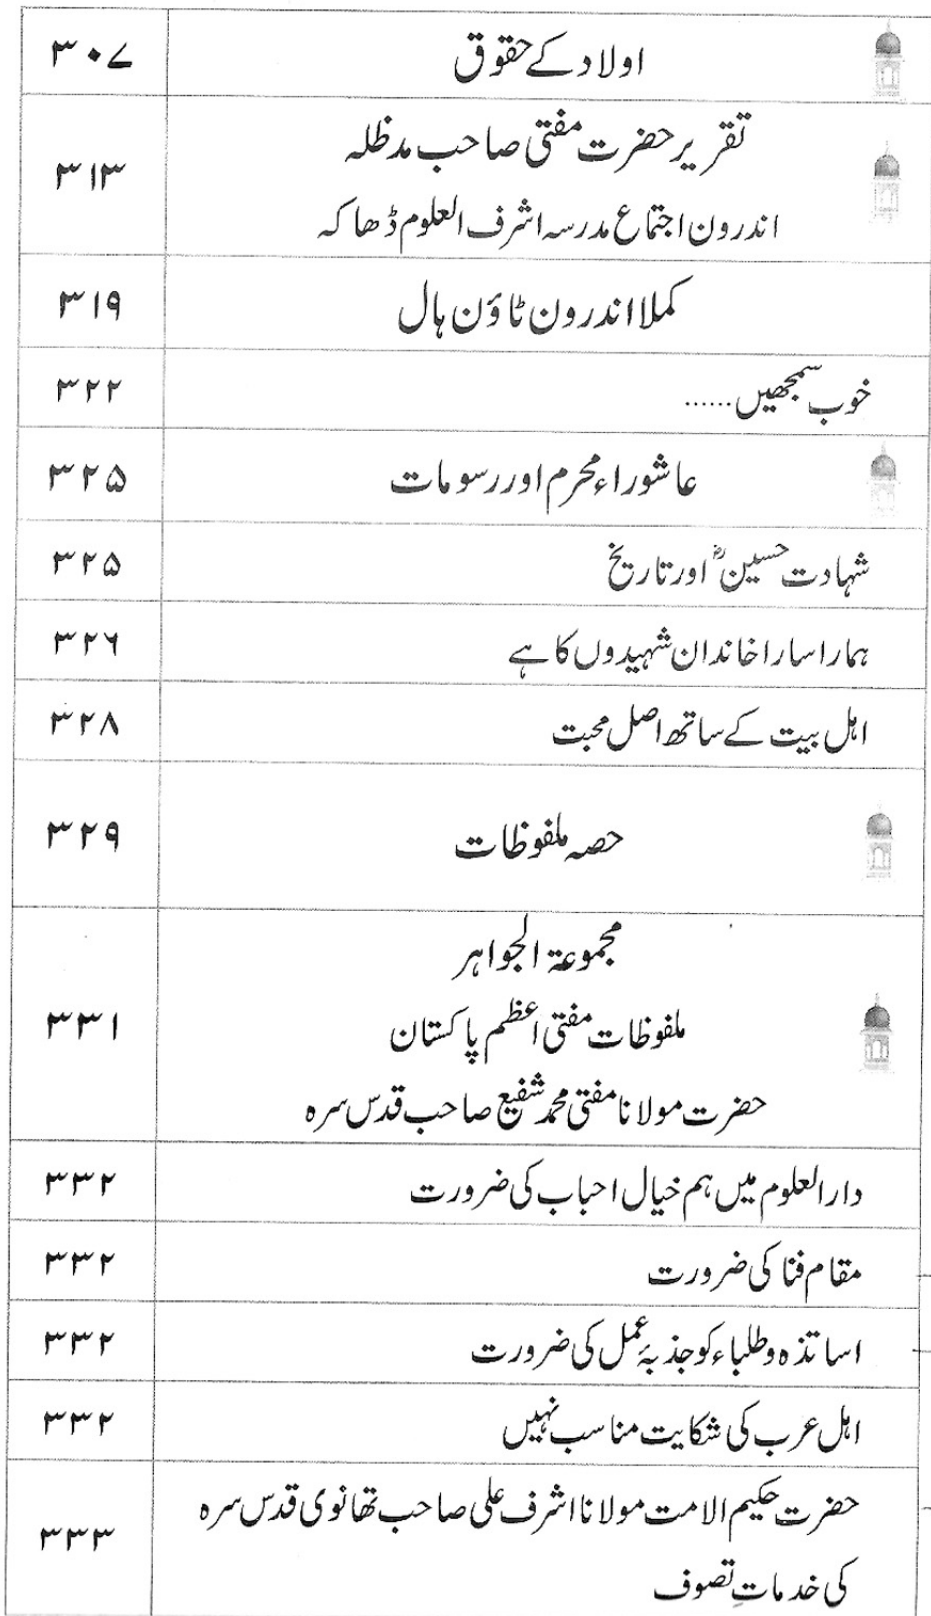 اولاد کے حقوق ۳۰۷
تقریر حضرت مفتی صاحب مدظلہ
اندرون اجتماع مدرسہ اشرف العلوم ڈھاکہ ۳۱۳
کملا اندرون ٹاؤن ہال ۳۱۹
خوب سمجھیں...... ۳۲۲
عاشوراء محرم اور رسومات ۳۲۵
شہادت حسینؓ اور تاریخ ۳۲۵
ہمارا سارا خاندان شہیدوں کا ہے ۳۲۶
اہل بیت کے ساتھ اصل محبت ۳۲۸
حصہ ملفوظات ۳۲۹
مجموعۃ الجواہر
ملفوظات مفتی اعظم پاکستان ۳۳۱
حضرت مولانا مفتی محمد شفیع صاحب قدس سرہ
دارالعلوم میں ہم خیال احباب کی ضرورت ۳۳۲
مقام فنا کی ضرورت ۳۳۲
اساتذہ وطلباء کو جذبۂ عمل کی ضرورت ۳۳۲
اہل عرب کی شکایت مناسب نہیں ۳۳۲
حضرت حکیم الامت مولانا اشرف علی صاحب تھانوی قدس سرہ
کی خدمات تصوف ۳۳۳